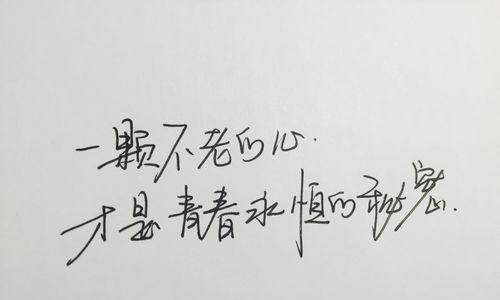 一颗不老的心.
才是青春永恒的秘密.